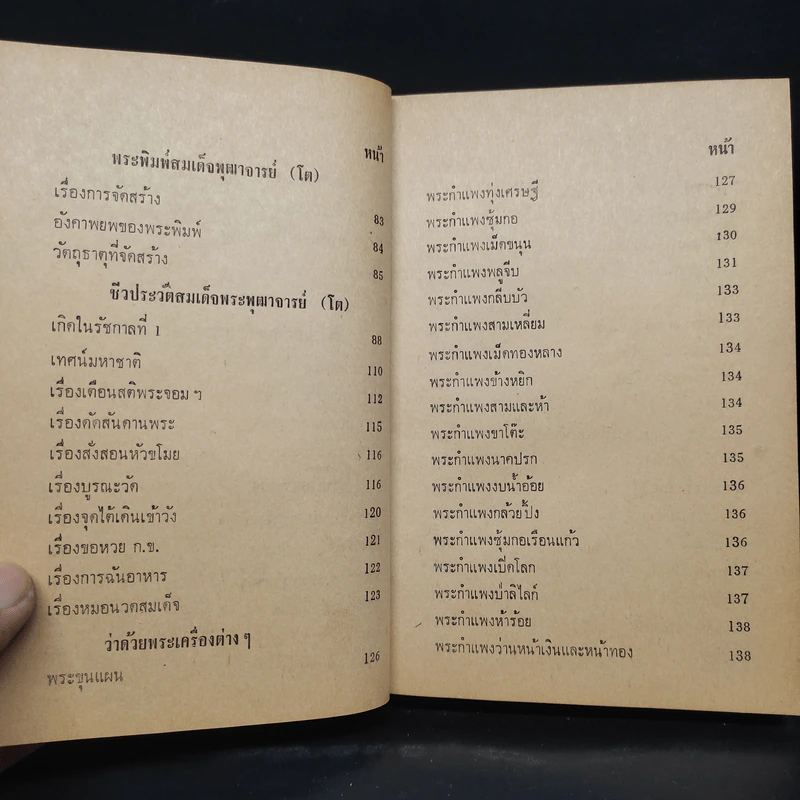 หน้า
พระพิมพ์สมเด็จพุฒาจารย์ (โต)
เรื่องการจัดสร้าง 83
อังคาพยพของพระพิมพ์ 84
วัตถุธาตุที่จัดสร้าง 85
ชีวประวัติสมเด็จพระพุฒาจารย์ (โต)
เกิดในรัชกาลที่ 1 88
เทศน์มหาชาติ 110
เรื่องเตือนสติพระจอมฯ 112
เรื่องดัดสันดานพระ 115
เรื่องสั่งสอนหัวขโมย 116
เรื่องบูรณะวัด 116
เรื่องจุดไต้เดินเข้าวัง 120
เรื่องขอหวย ก.ข. 121
เรื่องการฉันอาหาร 122
เรื่องหมอนวดสมเด็จ 123
ว่าด้วยพระเครื่องต่างๆ
พระขุนแผน 126
หน้า
พระกำแพงทุ่งเศรษฐี 127
พระกำแพงซุ้มกอ 129
พระกำแพงเม็ดขนุน 130
พระกำแพงพลูจีบ 131
พระกำแพงกลีบบัว 133
พระกำแพงสามเหลี่ยม 133
พระกำแพงเม็ดทองหลาง 134
พระกำแพงช้างหยิก 134
พระกำแพงสามและห้า 134
พระกำแพงขาโต๊ะ 135
พระกำแพงนาคปรก 135
พระกำแพงงบน้ำอ้อย 136
พระกำแพงกล้วยปิ้ง 136
พระกำแพงซุ้มกอเรือนแก้ว 136
พระกำแพงเปิดโลก 137
พระกำแพงป่าลิไลก์ 137
พระกำแพงห้าร้อย 138
พระกำแพงว่านหน้าเงินและหน้าทอง 138